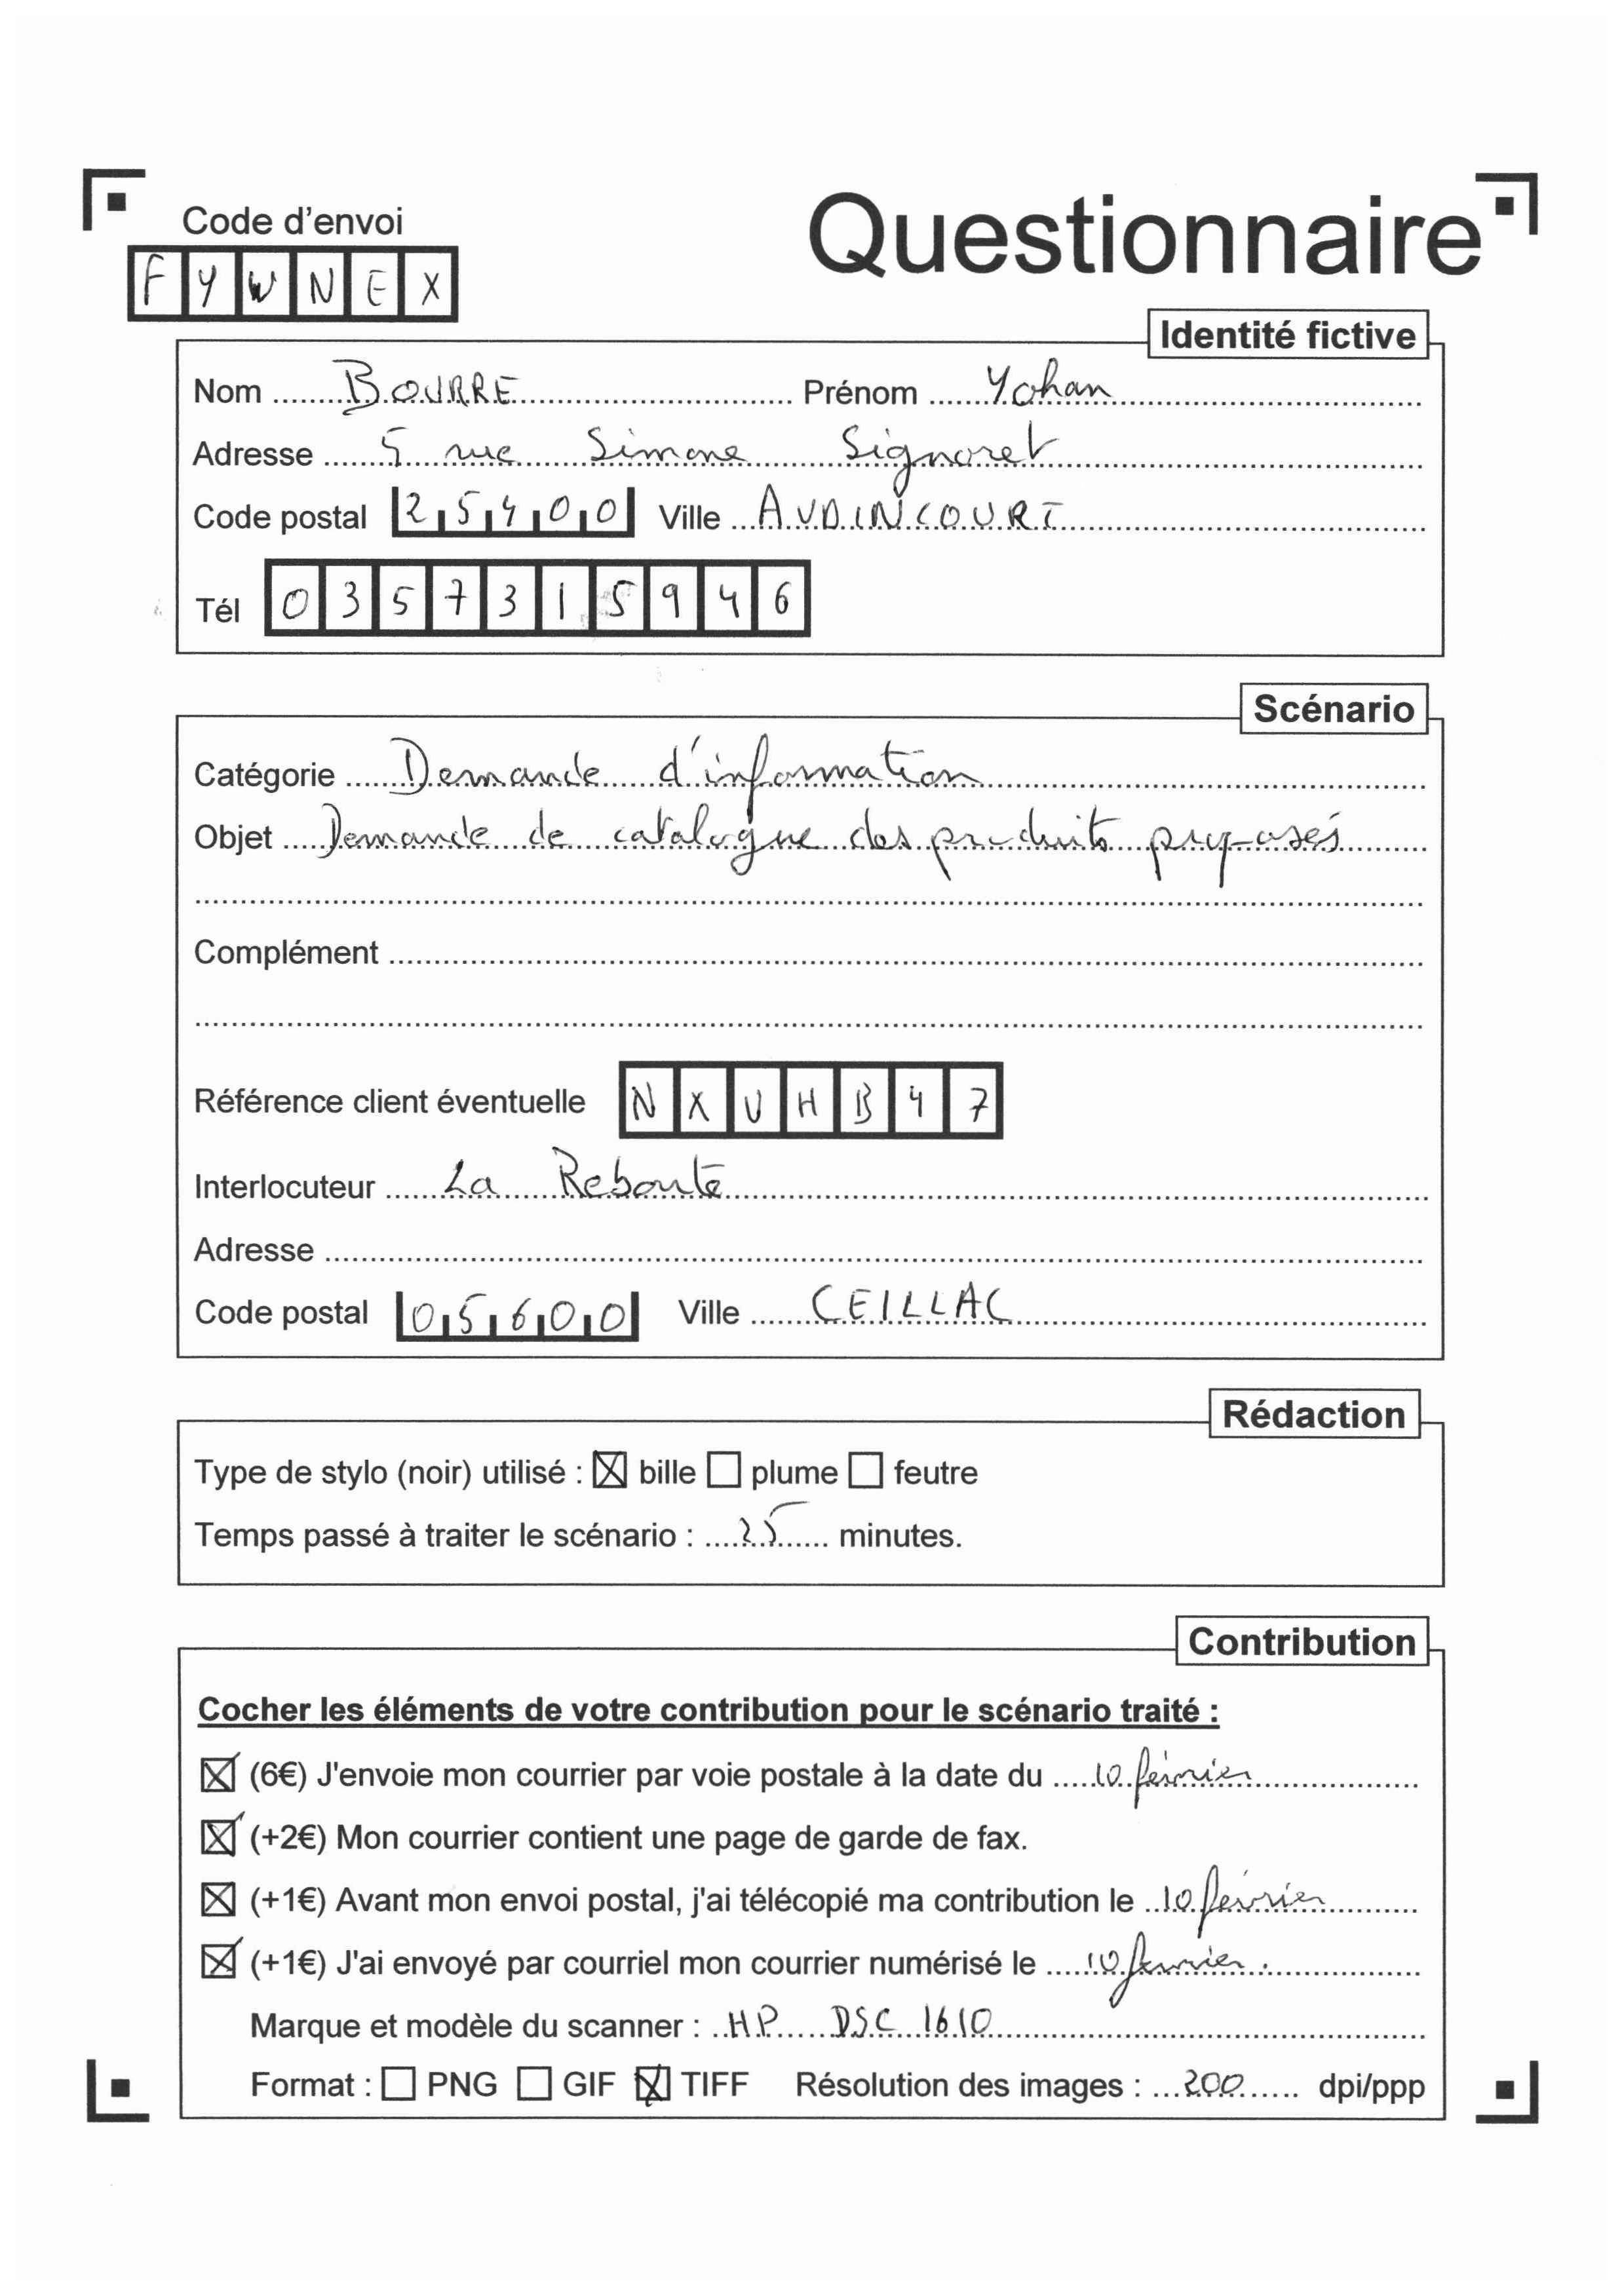 Code d'envoi
Questionnaire
F Y W N E X
Identité fictive
Nom BOURRE Prénom Yohan
Adresse 5 rue Simone Signoret
Code postal 25400 Ville AUDINCOURT
Tél 0357315946
Scénario
Catégorie Demande d'information
Objet Demande de catalogue des produits proposés
Complément
Référence client éventuelle N X U H B 4 7
Interlocuteur La Reboute
Adresse
Code postal 05600 Ville CEILLAC
Rédaction
Type de stylo (noir) utilisé : ☒ bille ☐ plume ☐ feutre
Temps passé à traiter le scénario : 25 minutes.
Contribution
Cocher les éléments de votre contribution pour le scénario traité :
☒ (6€) J'envoie mon courrier par voie postale à la date du 10 février
☒ (+2€) Mon courrier contient une page de garde de fax.
☒ (+1€) Avant mon envoi postal, j'ai télécopié ma contribution le 10 février
☒ (+1€) J'ai envoyé par courriel mon courrier numérisé le 10 février.
Marque et modèle du scanner : HP DSC 1610
Format : ☐ PNG ☐ GIF ☒ TIFF Résolution des images : 200 dpi/ppp